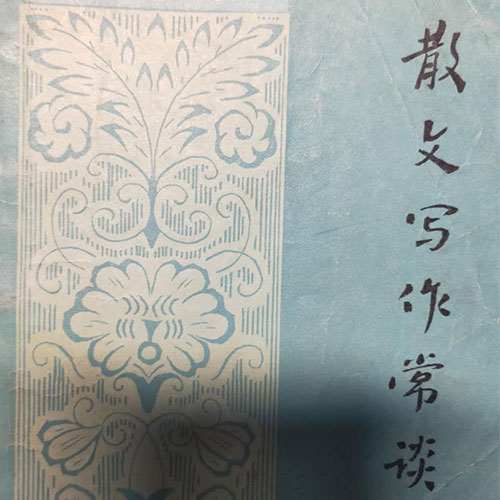 散文写作常谈